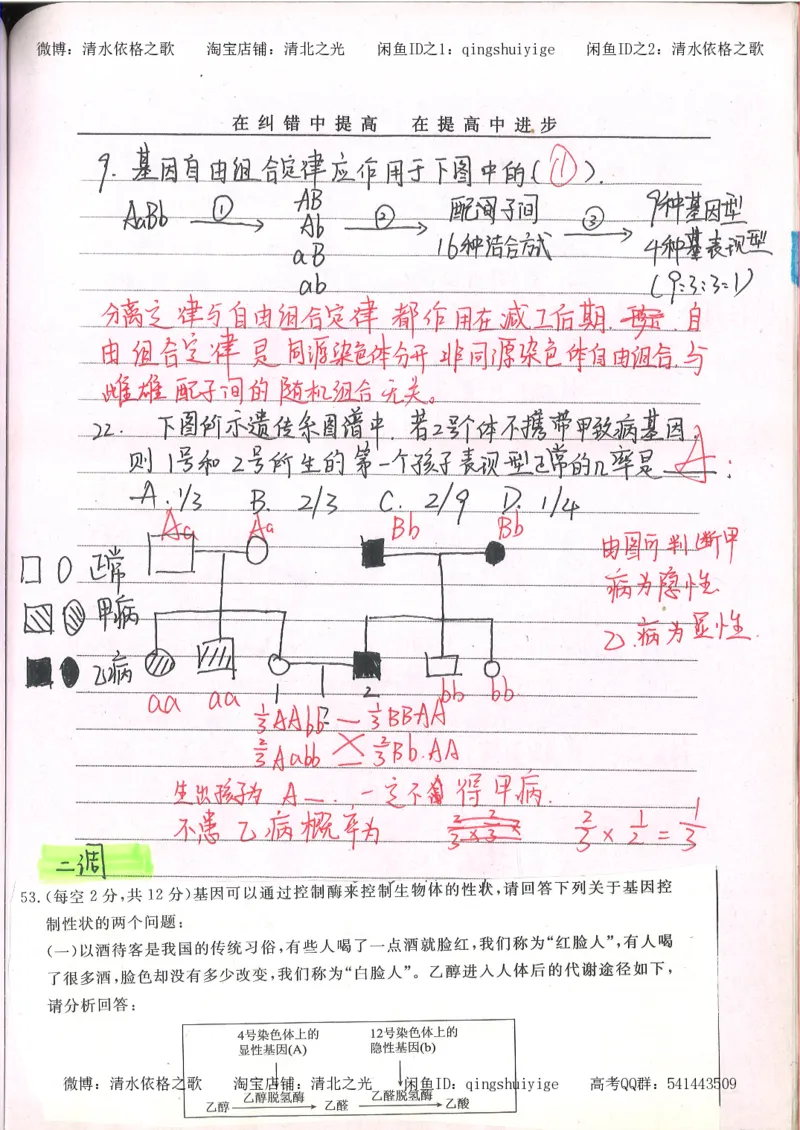 微博：清水依格之歌 淘宝店铺：清北之光 闲鱼ID之1：qingshuiyige 闲鱼ID之2：清水依格之歌
在纠错中提高 在提高中进步
9. 基因自由组合定律应作用于下图中的( ① ).
AaBb ① AB Ab aB ab ② 配子间 16种结合方式 ③ 9种基因型 4种表现型 (9:3:3:1)
分离定律与自由组合定律都作用在减Ⅰ后期. 自
由组合定律是同源染色体分开非同源染色体自由组合.与
雌雄配子间的随机组合无关。
22. 下图所示遗传系图谱中.若2号个体不携带甲致病基因,
则1号和2号所生的第一个孩子表现型正常的几率是 A :
A. 1/3 B. 2/3 C. 2/9 D. 1/4
Aa Aa Bb Bb
由图可判断甲
病为隐性
乙病为显性.
正常
甲病
乙病
aa aa 1 2 bb bb
1/3 AAbb 1/3 BBAA
2/3 Aabb 2/3 Bb.AA
生出孩子为 A_. 一定不得甲病.
不患乙病概率为 2/3 × 1/2 = 1/3
二调
53.(每空2分,共12分)基因可以通过控制酶来控制生物体的性状,请回答下列关于基因控
制性状的两个问题:
(一)以酒待客是我国的传统习俗,有些人喝了一点酒就脸红,我们称为“红脸人”,有人喝
了很多酒,脸色却没有多少改变,我们称为“白脸人”。乙醇进入人体后的代谢途径如下,
请分析回答:
4号染色体上的 12号染色体上的
显性基因(A) 隐性基因(b)
微博：清水依格之歌 淘宝店铺：清北之光 闲鱼ID：qingshuiyige 高考QQ群：541443509
乙醇脱氢酶 乙醛脱氢酶
乙醇 乙醛 乙酸